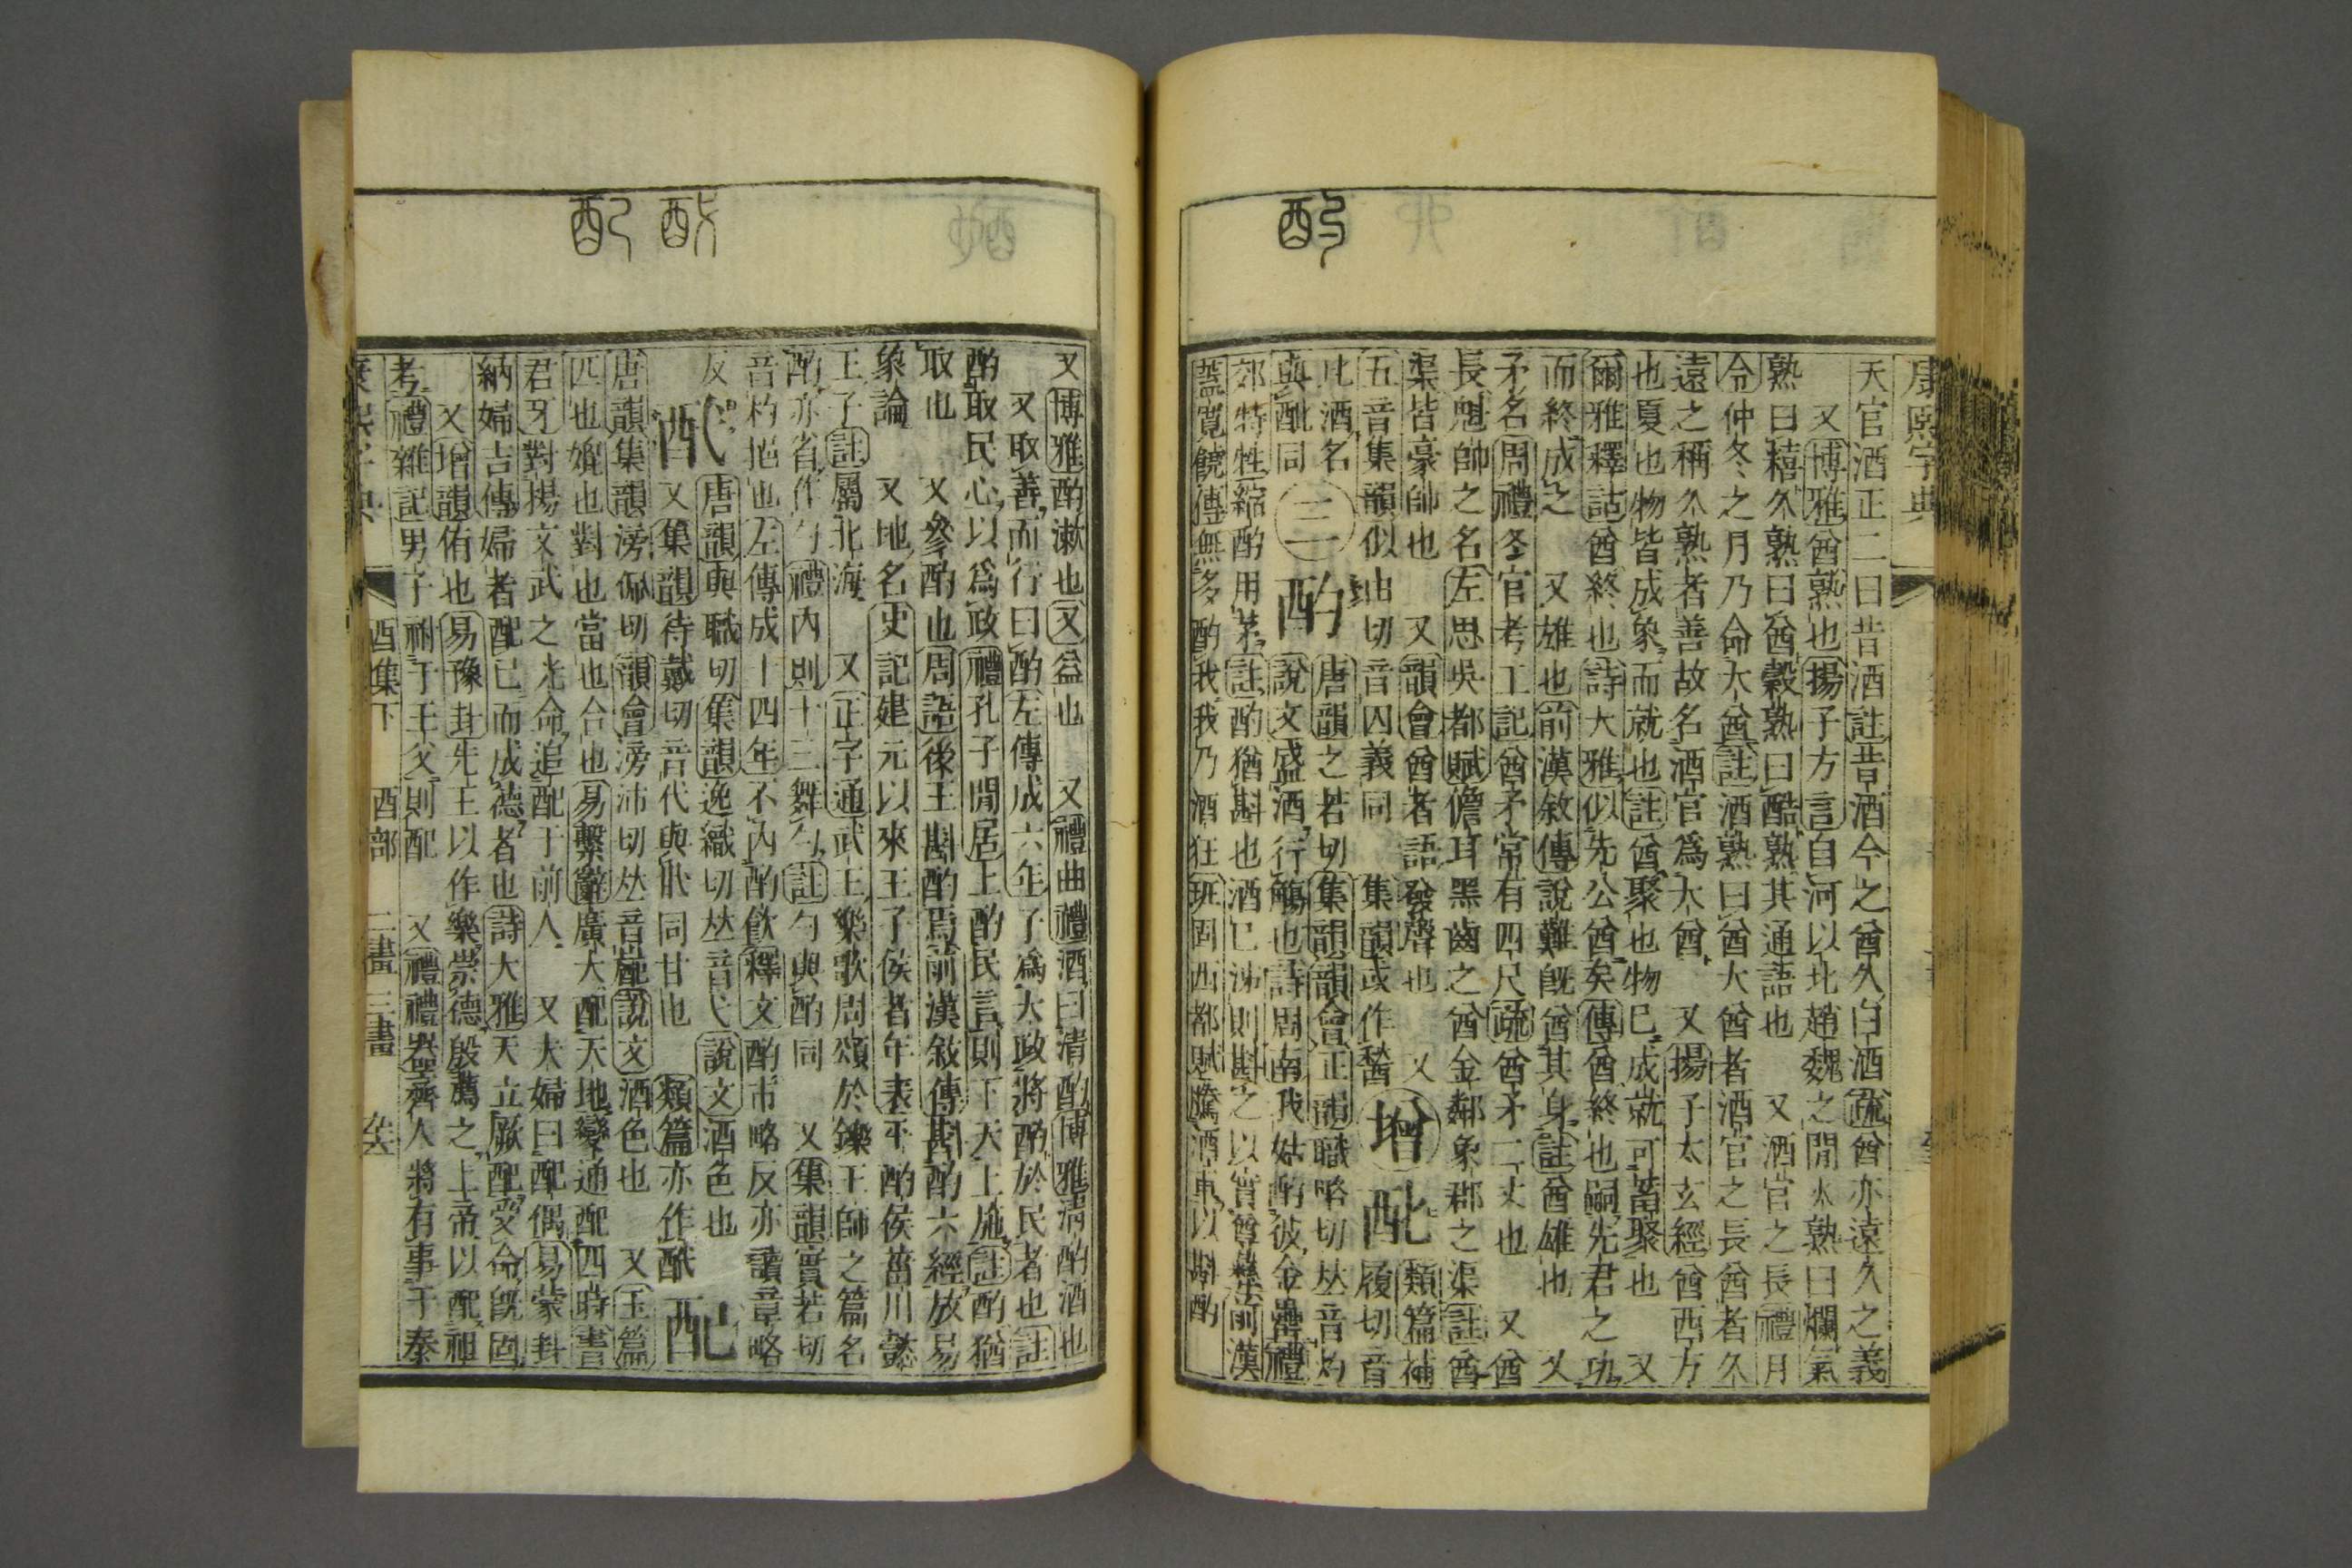 康熙字典
天官酒正二曰昔酒註昔酒今之酋久白酒疏酋亦遠久之義
又博雅酋熟也揚子方言自河以北趙魏之閒火熟曰爛氣
熟曰糦久熟曰酋穀熟曰酷熟其通語也 又酒官之長禮月
令仲冬之月乃命大酋註酒熟曰酋大酋者酒官之長酋者久
遠之稱久熟者善故名酒官爲大酋 又揚子太玄經酋西方
也夏也物皆成象而就也註酋聚也物已成就可蓄聚也 又
爾雅釋詁酋終也詩大雅似先公酋矣傳酋終也嗣先君之功
而終成之 又雄也前漢敘傳說難旣酋其身註酋雄也 又
矛名周禮冬官考工記酋矛常有四尺疏酋矛二丈也 又酋
長魁帥之名左思吳都賦儋耳黑齒之酋金鄰象郡之渠註酋
渠皆豪帥也 又韻會酋者語發聲也 又
五音集韻似由切音囚義同 集韻或作
增
類篇補
履切音
匕酒名
同
三
酌
唐韻之若切集韻韻會正韻職略切𠀤音灼
說文盛酒行觴也詩周南我姑酌彼金罍禮
郊特牲縮酌用茅註酌猶斟也酒已泲則斟之以實尊彝前漢
蓋寬饒傳無多酌我我乃酒狂班固西都賦騰酒車以斟酌
又博雅酌漱也又益也 又禮曲禮酒曰清酌博雅清酌酒也
又取善而行曰酌左傳成六年子爲大政將酌於民者也註
酌取民心以爲政禮孔子閒居上酌民言則下天上施註酌猶
取也 又參酌也周語後王斟酌焉前漢敘傳斟酌六經放易
象論 又地名史記建元以來王子侯者年表平酌侯菑川懿
王子註屬北海 又正字通武王樂歌周頌於鑠王師之篇名
酌亦省作勺禮內則十三舞勺註勺與酌同 又集韻實若切
音杓挹也左傳成十四年不內酌飮釋文酌市略反亦讀章略
反
酖
唐韻與職切集韻逸織切𠀤音弋說文酒色也
又集韻待戴切音代與 同甘也 類篇亦作
配
唐韻集韻滂佩切韻會滂沛切𠀤音 說文酒色也 又玉篇
匹也媲也對也當也合也易繫辭廣大配天地變通配四時書
君牙對揚文武之光命追配于前人 又夫婦曰配偶易蒙卦
納婦吉傳婦者配已而成德者也詩大雅天立厥配受命旣固
又增韻侑也易豫卦先王以作樂崇德殷薦之上帝以配祖
考禮雜記男子祔于王父則配 又禮禮器齊人將有事于泰
康熙字典 酉集下 酉部 二畫三畫